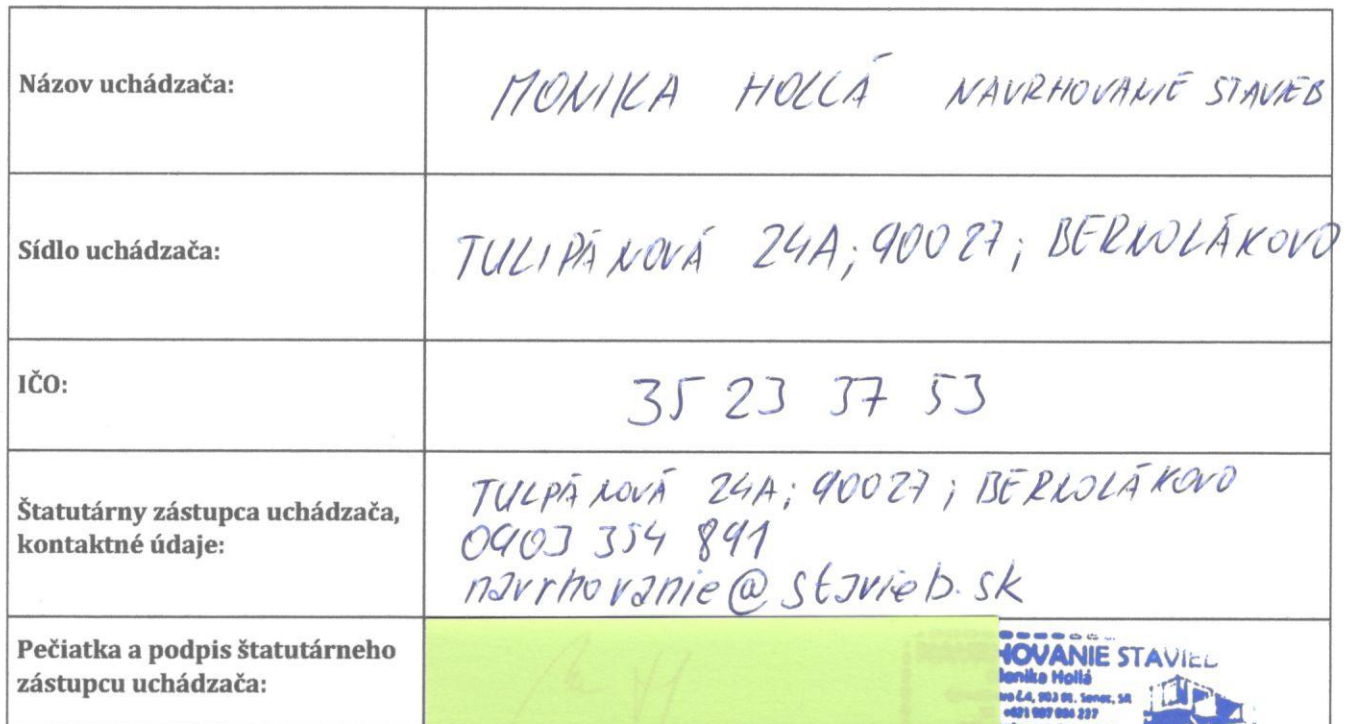 Názov uchádzača:
MONIKA HOLLÁ NAVRHOVANIE STAVIEB
Sídlo uchádzača:
TULIPÁNOVÁ 24A; 90027; BERNOLÁKOVO
IČO:
35 23 37 53
Štatutárny zástupca uchádzača,
kontaktné údaje:
TULPÁNOVÁ 24A; 90027; BERNOLÁKOVO
0903 354 891
navrhovanie@stavieb.sk
Pečiatka a podpis štatutárneho
zástupcu uchádzača:
HOVANIE STAVIEB
Monika Hollá
Senec, SR